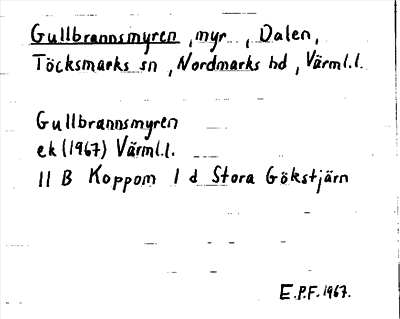 Gullbrannsmyren, myr, Dalen,
Töcksmarks sn, Nordmarks hd, Värml.l.
Gullbrannsmyren
ek (1967) Värml.l.
11 B Koppom 1 d Stora Gökstjärn
E.P.F. 1967.